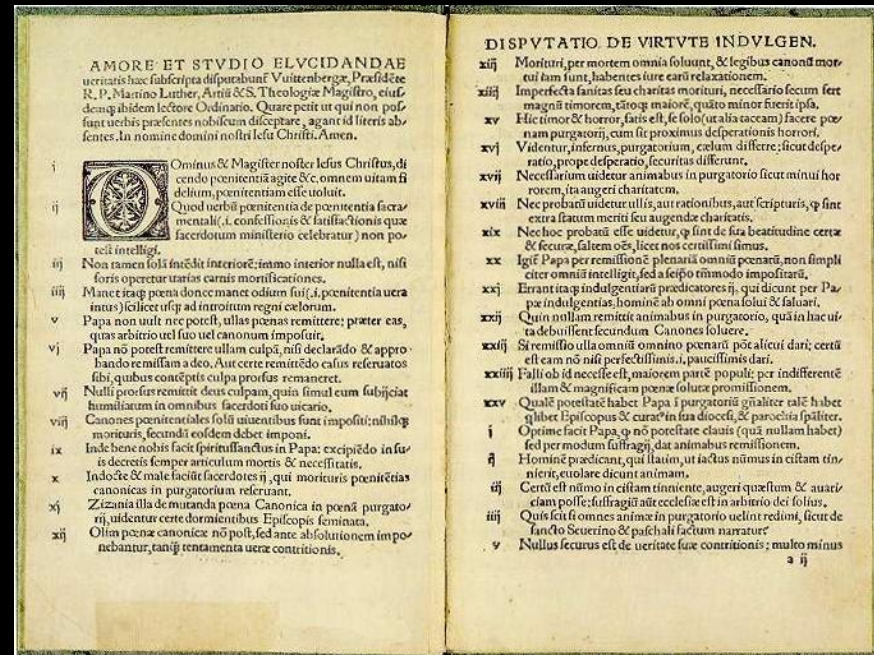 AMORE ET STVDIO ELVCIDANDAE
ueritatis hæc subscripta disputabunt̃ Vuittenbergæ, Præsidẽte
R. P. Martino Luther, Artiũ & S. Theologiæ Magistro, eius,
demq; ibidem lectore Ordinario. Quare petit ut qui non pos/
sunt uerbis præsentes nobiscum disceptare, agant id literis ab/
sentes. In nomine domini nostri Iesu Christi. Amen.
i DOminus & Magister noster Iesus Christus, di
cendo pœnitentiã agite &c. omnem uitam fi
delium, pœnitentiam esse uoluit.
ij Quod uerbũ pœnitentia de pœnitentia sacra/
mentali (.i. confessionis & satisfactionis quæ
sacerdotum ministerio celebratur) non po/
test intelligi.
iij Non tamen solã intẽdit interiorẽ: immo interior nulla est, nisi
foris operetur uarias carnis mortificationes.
iiij Manet itaq; pœna donec manet odium sui (.i. pœnitentia uera
intus) scilicet usq; ad introitum regni cælorum.
v Papa non uult nec potest, ullas pœnas remittere: præter eas,
quas arbitrio uel suo uel canonum imposuit.
vj Papa nõ potest remittere ullam culpã, nisi declarãdo & appro
bando remissam a deo. Aut certe remittẽdo casus reseruatos
sibi, quibus contẽptis culpa prorsus remaneret.
vij Nulli prorsus remittit deus culpam, quin simul eum subijciat
humiliatum in omnibus sacerdoti suo uicario.
viij Canones pœnitentiales solũ uiuentibus sunt impositi: nihilq;
morituris, secundũ eosdem debet imponi.
ix Inde bene nobis facit spiritussanctus in Papa: excipiẽdo in su/
is decretis semper articulum mortis & necessitatis.
x Indocte & male faciũt sacerdotes ij, qui morituris pœnitẽtias
canonicas in purgatorium reseruant.
xj Zizania illa de mutanda pœna Canonica in pœnã purgato/
rij, uidentur certe dormientibus Episcopis seminata.
xij Olim pœnæ canonicæ nõ post, sed ante absolutionem impo/
nebantur, tanq̃ tentamenta ueræ contritionis.
DISPVTATIO DE VIRTVTE INDVLGEN.
xiij Morituri, per mortem omnia soluunt, & legibus canonũ mor/
tui iam sunt, habentes iure earũ relaxationem.
xiiij Imperfecta sanitas seu charitas morituri, necessario secum fert
magnũ timorem, tãtoq; maiorẽ, quãto minor fuerit ipsa.
xv Hic timor & horror, satis est, se solo (ut alia taceam) facere pœ/
nam purgatorij, cum sit proximus desperationis horrori.
xvj Videntur, infernus, purgatorium, cælum differre: sicut despe/
ratio, prope desperatio, securitas differunt.
xvij Necessarium uidetur animabus in purgatorio sicut minui hor
rorem, ita augeri charitatem.
xviij Nec probatũ uidetur ullis, aut rationibus, aut scripturis, q̃ sint
extra statum meriti seu augendæ charitatis.
xix Nec hoc probatũ esse uidetur, q̃ sint de sua beatitudine certæ
& securæ, saltem oẽs, licet nos certissimi simus.
xx Igit̃ Papa per remissionẽ plenariã omniũ pœnarũ, non simpli
citer omniũ intelligit, sed a seipso tm̃modo impositarũ.
xxj Errant itaq; indulgentiarũ prædicatores ij, qui dicunt per Pa/
pæ indulgentias, hominẽ ab omni pœna solui & saluari.
xxij Quin nullam remittit animabus in purgatorio, quã in hac ui/
ta debuissent secundum Canones soluere.
xxiij Si remissio ulla omniũ omnino pœnarũ põt alicui dari; certũ
est eam nõ nisi perfectissimis .i. paucissimis dari.
xxiiij Falli ob id necesse est, maiorem partẽ populi: per indifferentẽ
illam & magnificam pœnæ solutæ promissionem.
xxv Qualẽ potestatẽ habet Papa ĩ purgatoriũ gñaliter talẽ habet
q̃libet Episcopus & curat9 in sua diocesi, & parochia sp̃aliter.
i Optime facit Papa, q̃ nõ potestate clauis (quã nullam habet)
sed per modum suffragij, dat animabus remissionem.
ij Hominẽ prædicant, qui statim, ut iactus nũmus in cistam tin/
nierit, euolare dicunt animam.
iij Certũ est nũmo in cistam tinniente, augeri quæstum & auari/
ciam posse; suffragiũ aũt ecclesiæ est in arbitrio dei solius.
iiij Quis scit si omnes animæ in purgatorio uelint redimi, sicut de
sancto Seuerino & paschali factum narratur?
v Nullus securus est de ueritate suæ contritionis; multo minus
a ij